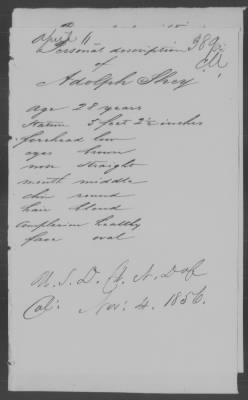 April 11
Personal description
of
Adolph
age 28 years
stature 5 feet 2½ inches
forehead low
eyes brown
nose straight
mouth middle
chin round
hair blond
complexion healthy
face oval
U. S. D. Ct. N. D of
Cal: Nov: 4. 1856.